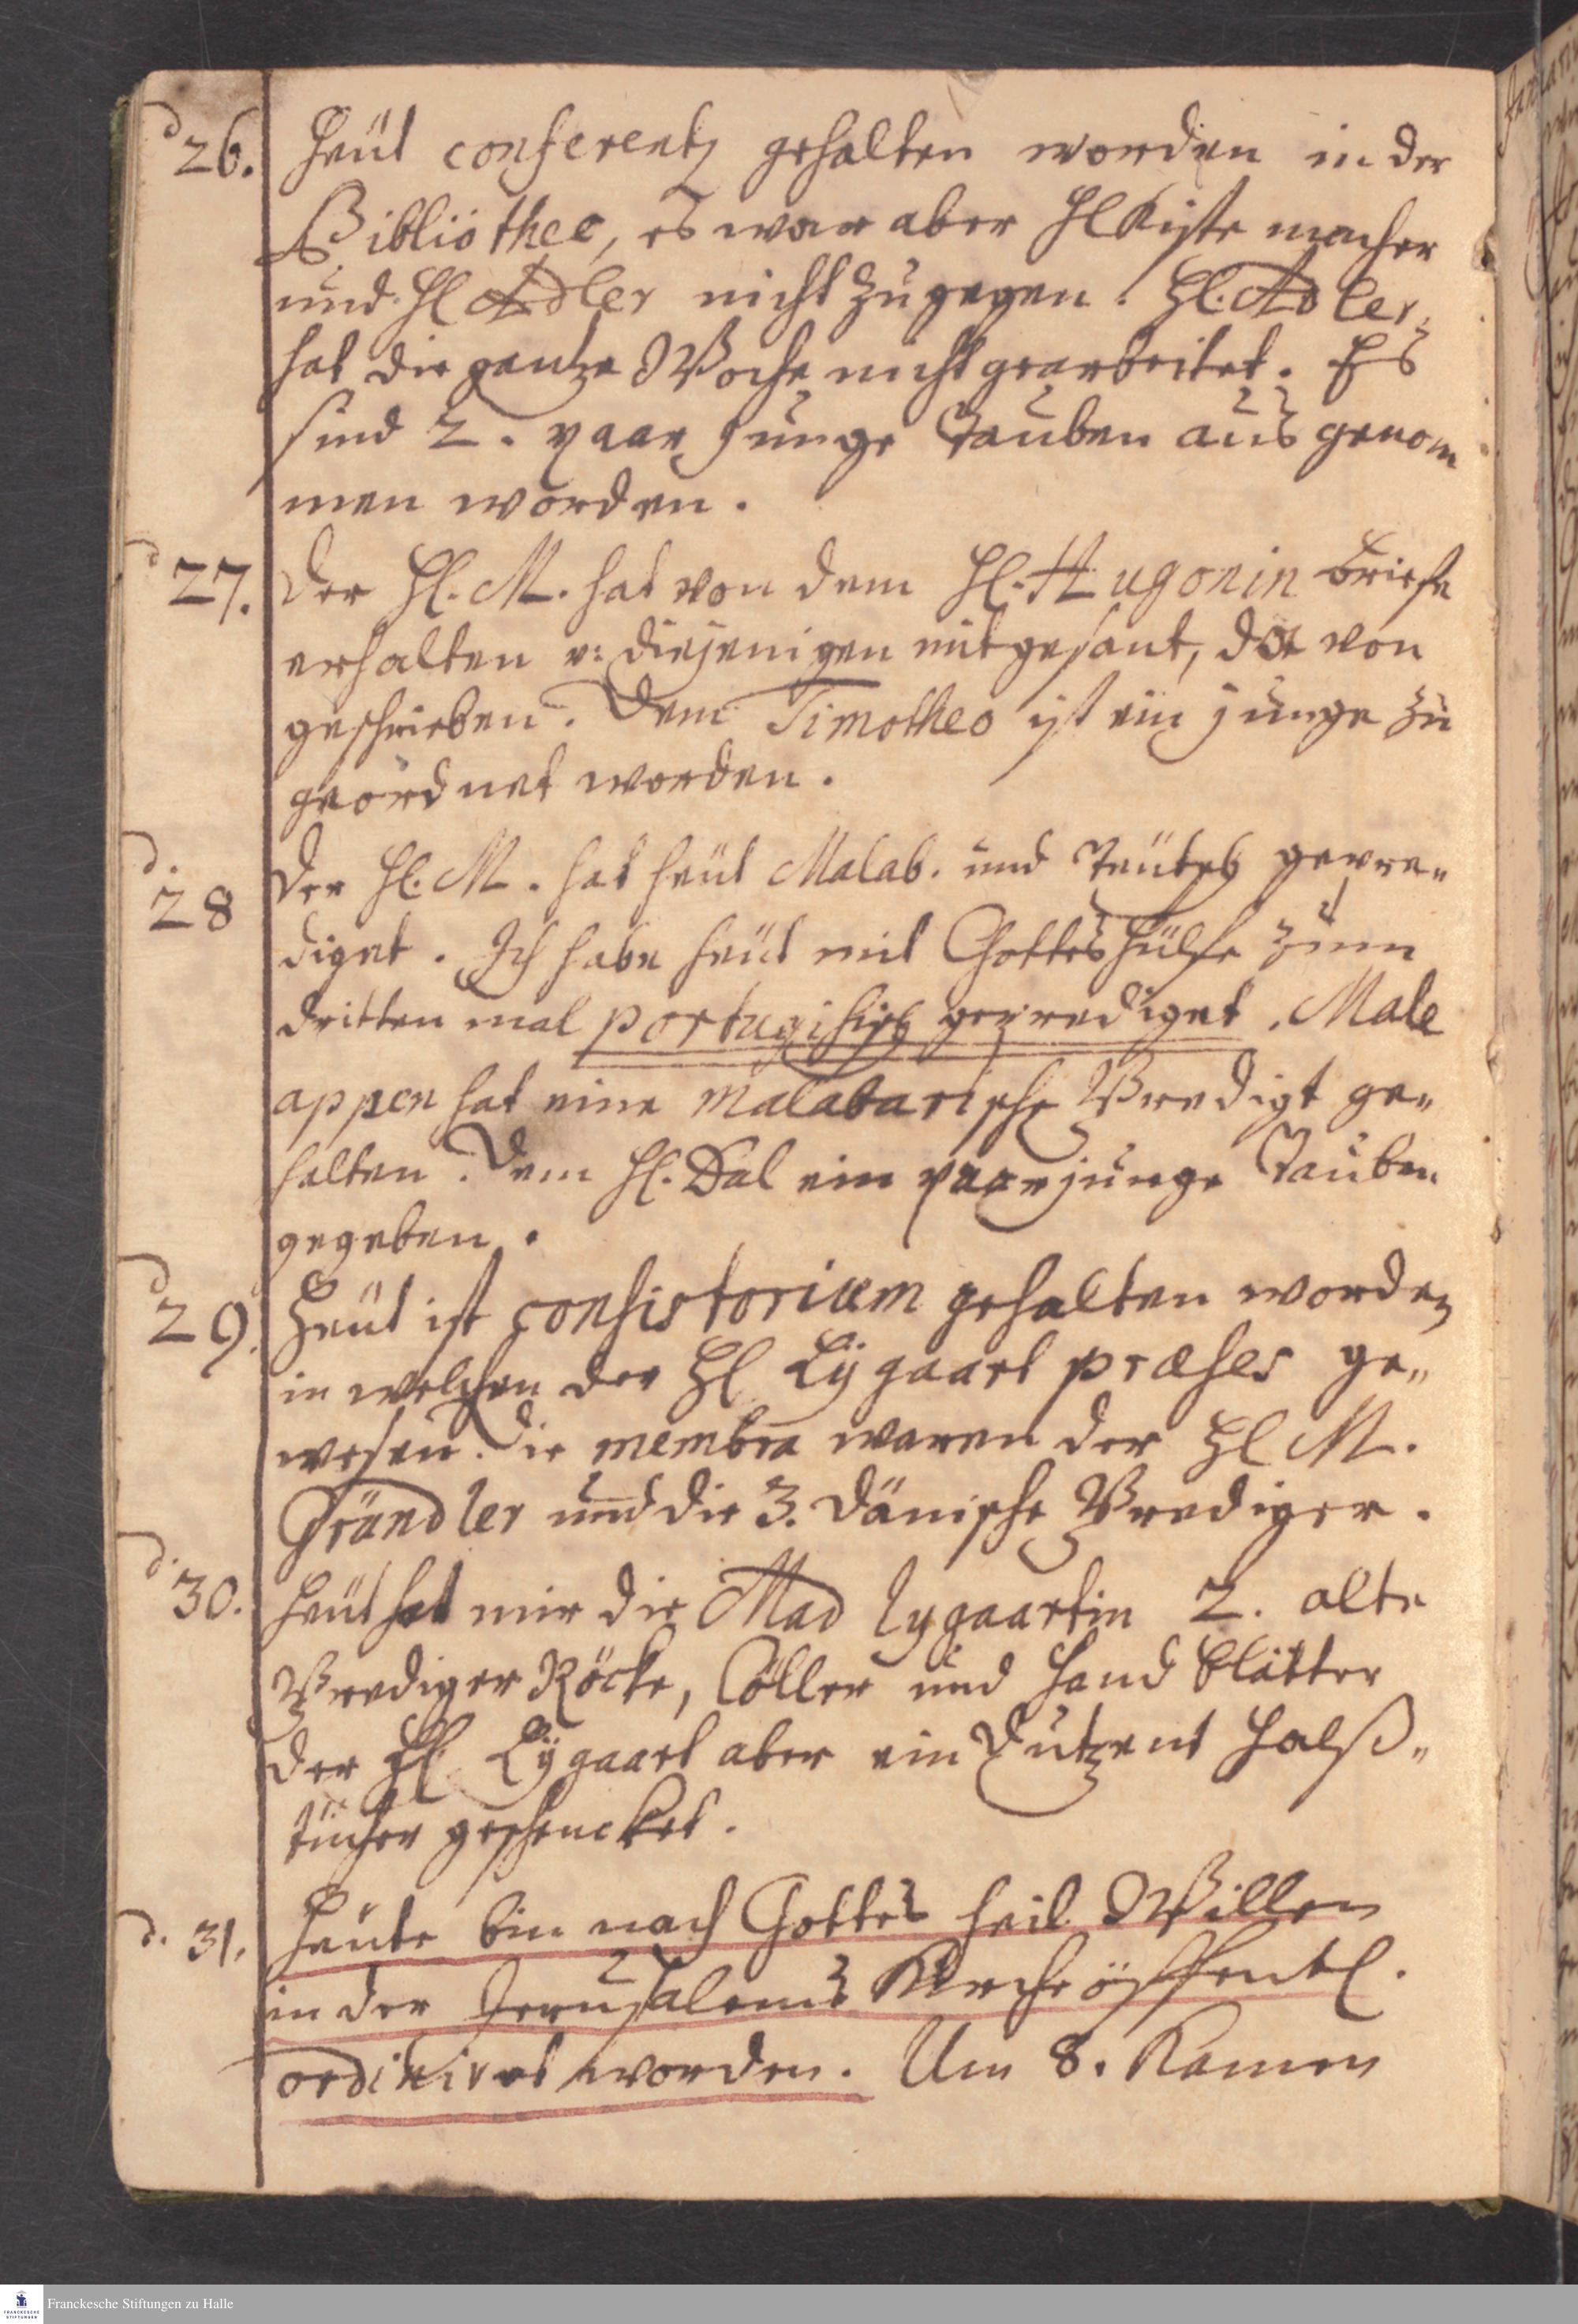 d 26. Heüt conferentz gehalten worden in der
Bibliöthec, es war aber Hl Kistemacher
und Hl Adler nicht zugegen. Hl. Adler
hat die gantze Woche nicht gearbeitet. Es
sind 2. paar Junge Tauben aus genom
men worden.
d 27. Der Hl. M. hat von dem Hl. Hugonin Briefe
erhalten u: diejenigen mitgesant, da von
geschrieben. Dem Timotheo ist ein junge zu
geordnet worden.
d. 28 Der Hl. M. hat heüt Malab. und Teütsch gepre„
diget. Ich habe heüt mit Gottes Hülfe zum
dritten mal portugisisch geprediget. Male
appen hat eine Malabarische Predigt ge„
halten. Dem Hl. Dal ein paar junge Tauben
gegeben.
d 29. Heüt ist consistorium gehalten worden
in welchen der Hl Lÿgaart præses ge„
wesen. Die membra waren der Hl M.
Gründler und die 3. Dänische Prediger.
d. 30. Heüt hat mir die Mad Lygaartin 2. alte
Prediger Röcke, Cöller und Hand blätter
der Hl. Lÿgaart aber ein Dutzent Halß„
tücher geschencket.
d. 31. Heute bin nach Gottes heil. Willen
in der Jerusalems Kirche öffentl.
ordiniret worden. Um 8. Kamen
Franckesche Stiftungen zu Halle